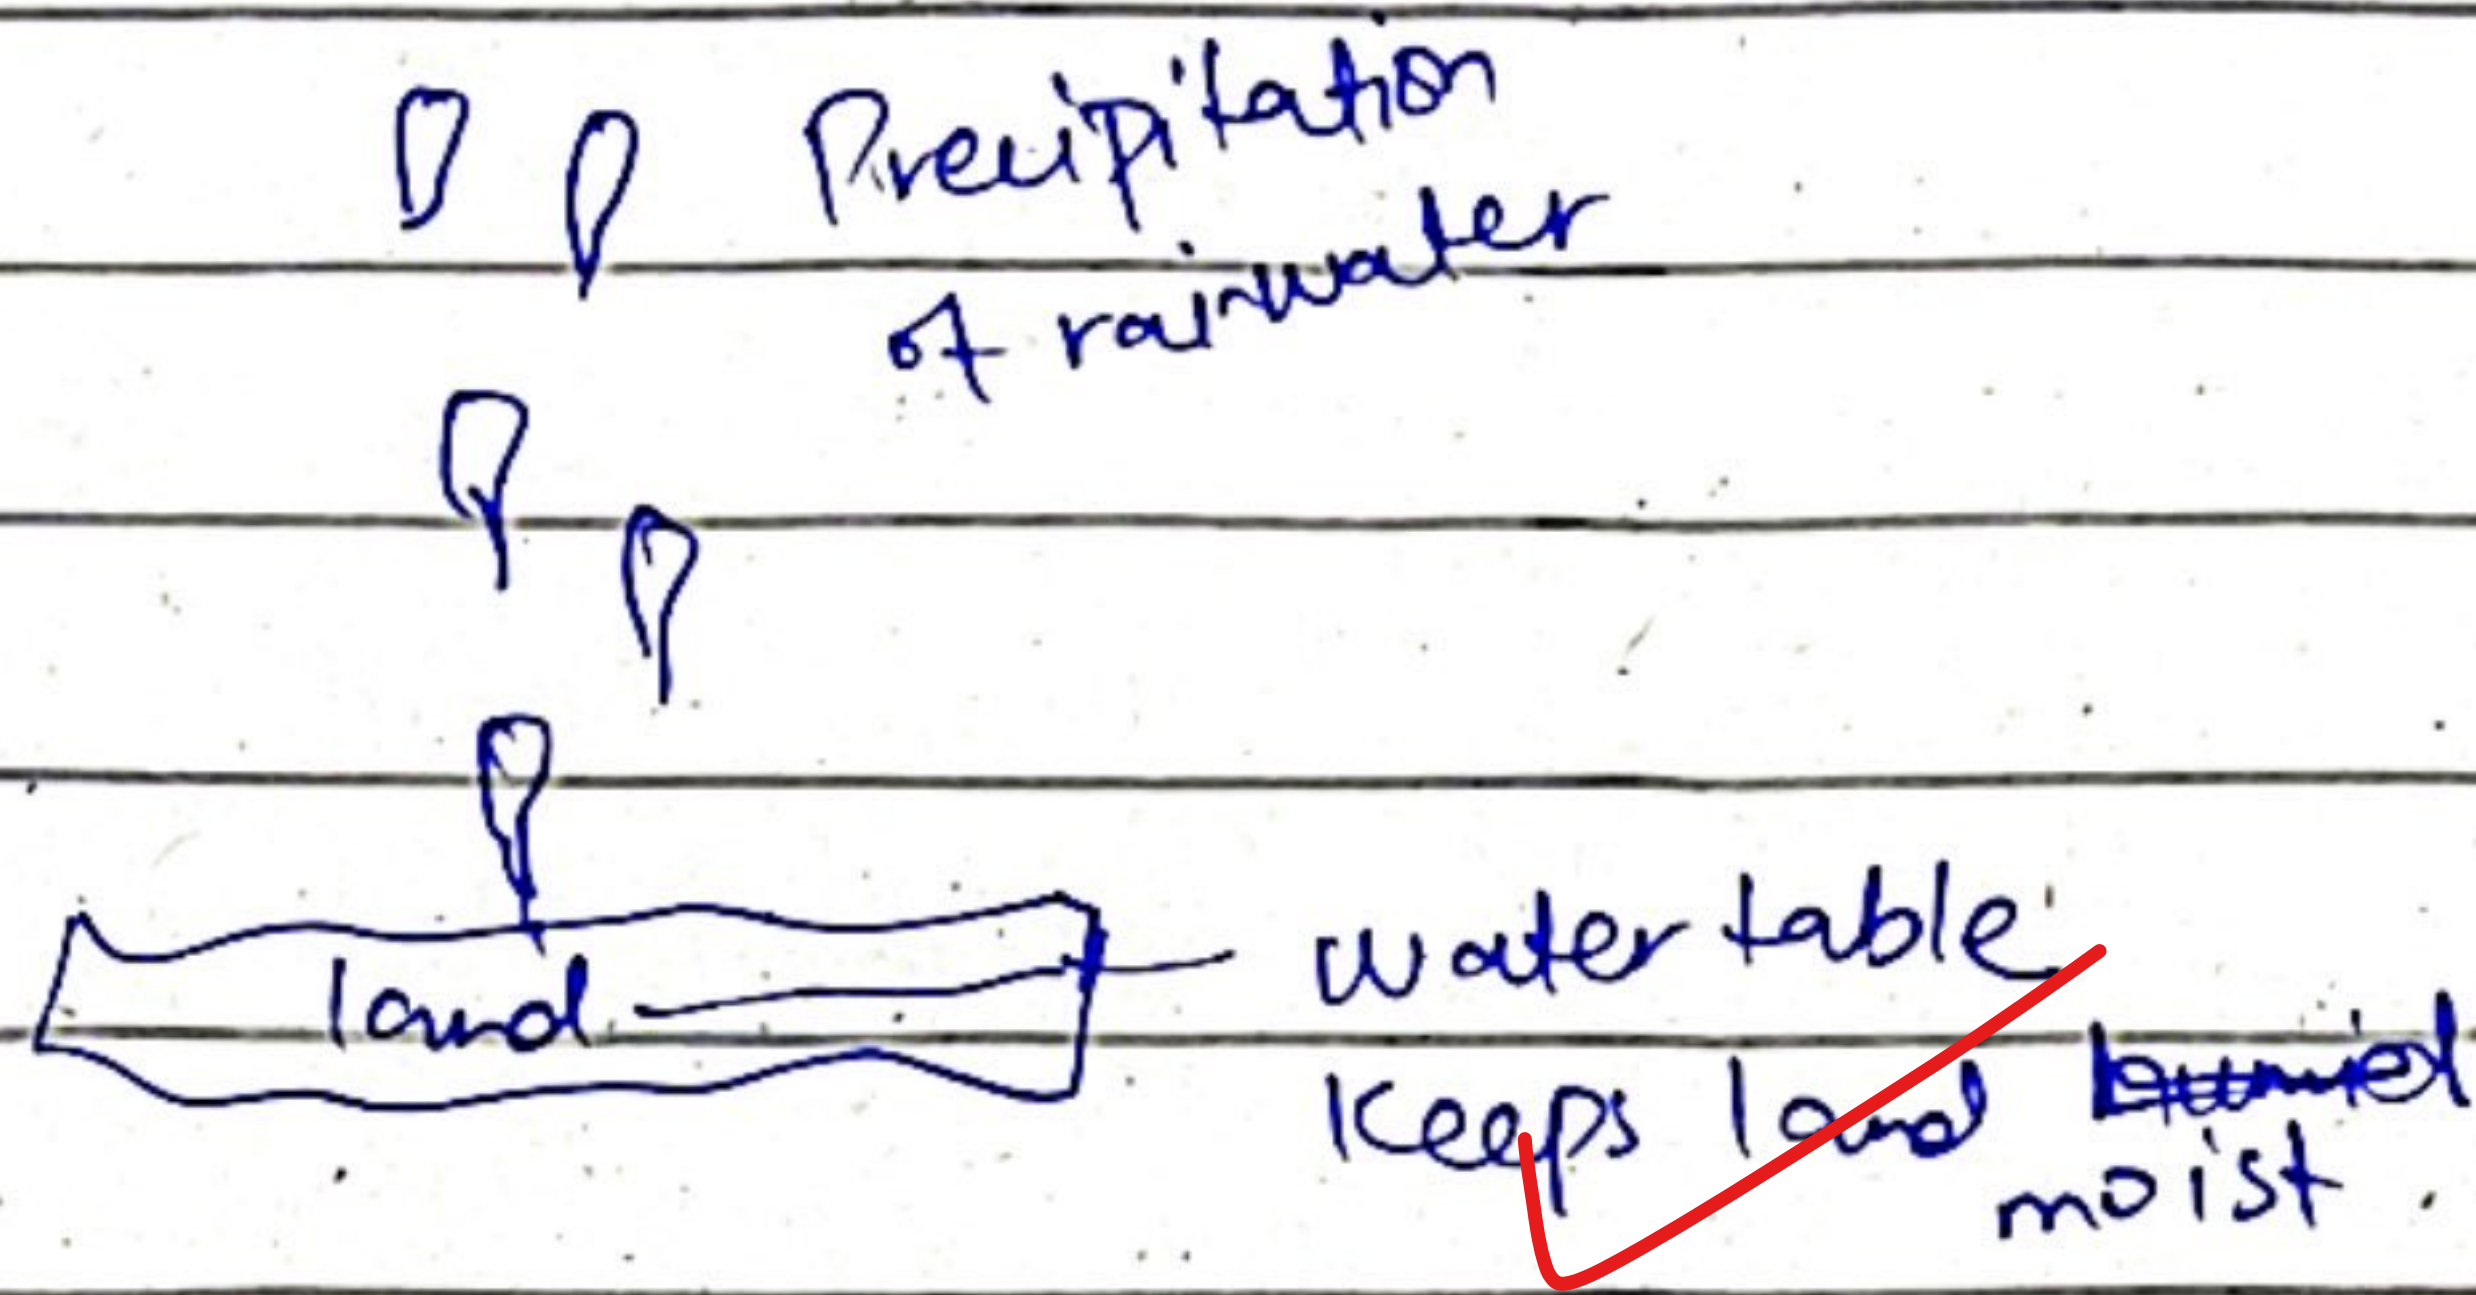 Precipitation
of rainwater
land
water table
keeps land
moist